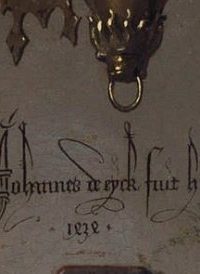 Johannes de eyck fuit h
.1434.